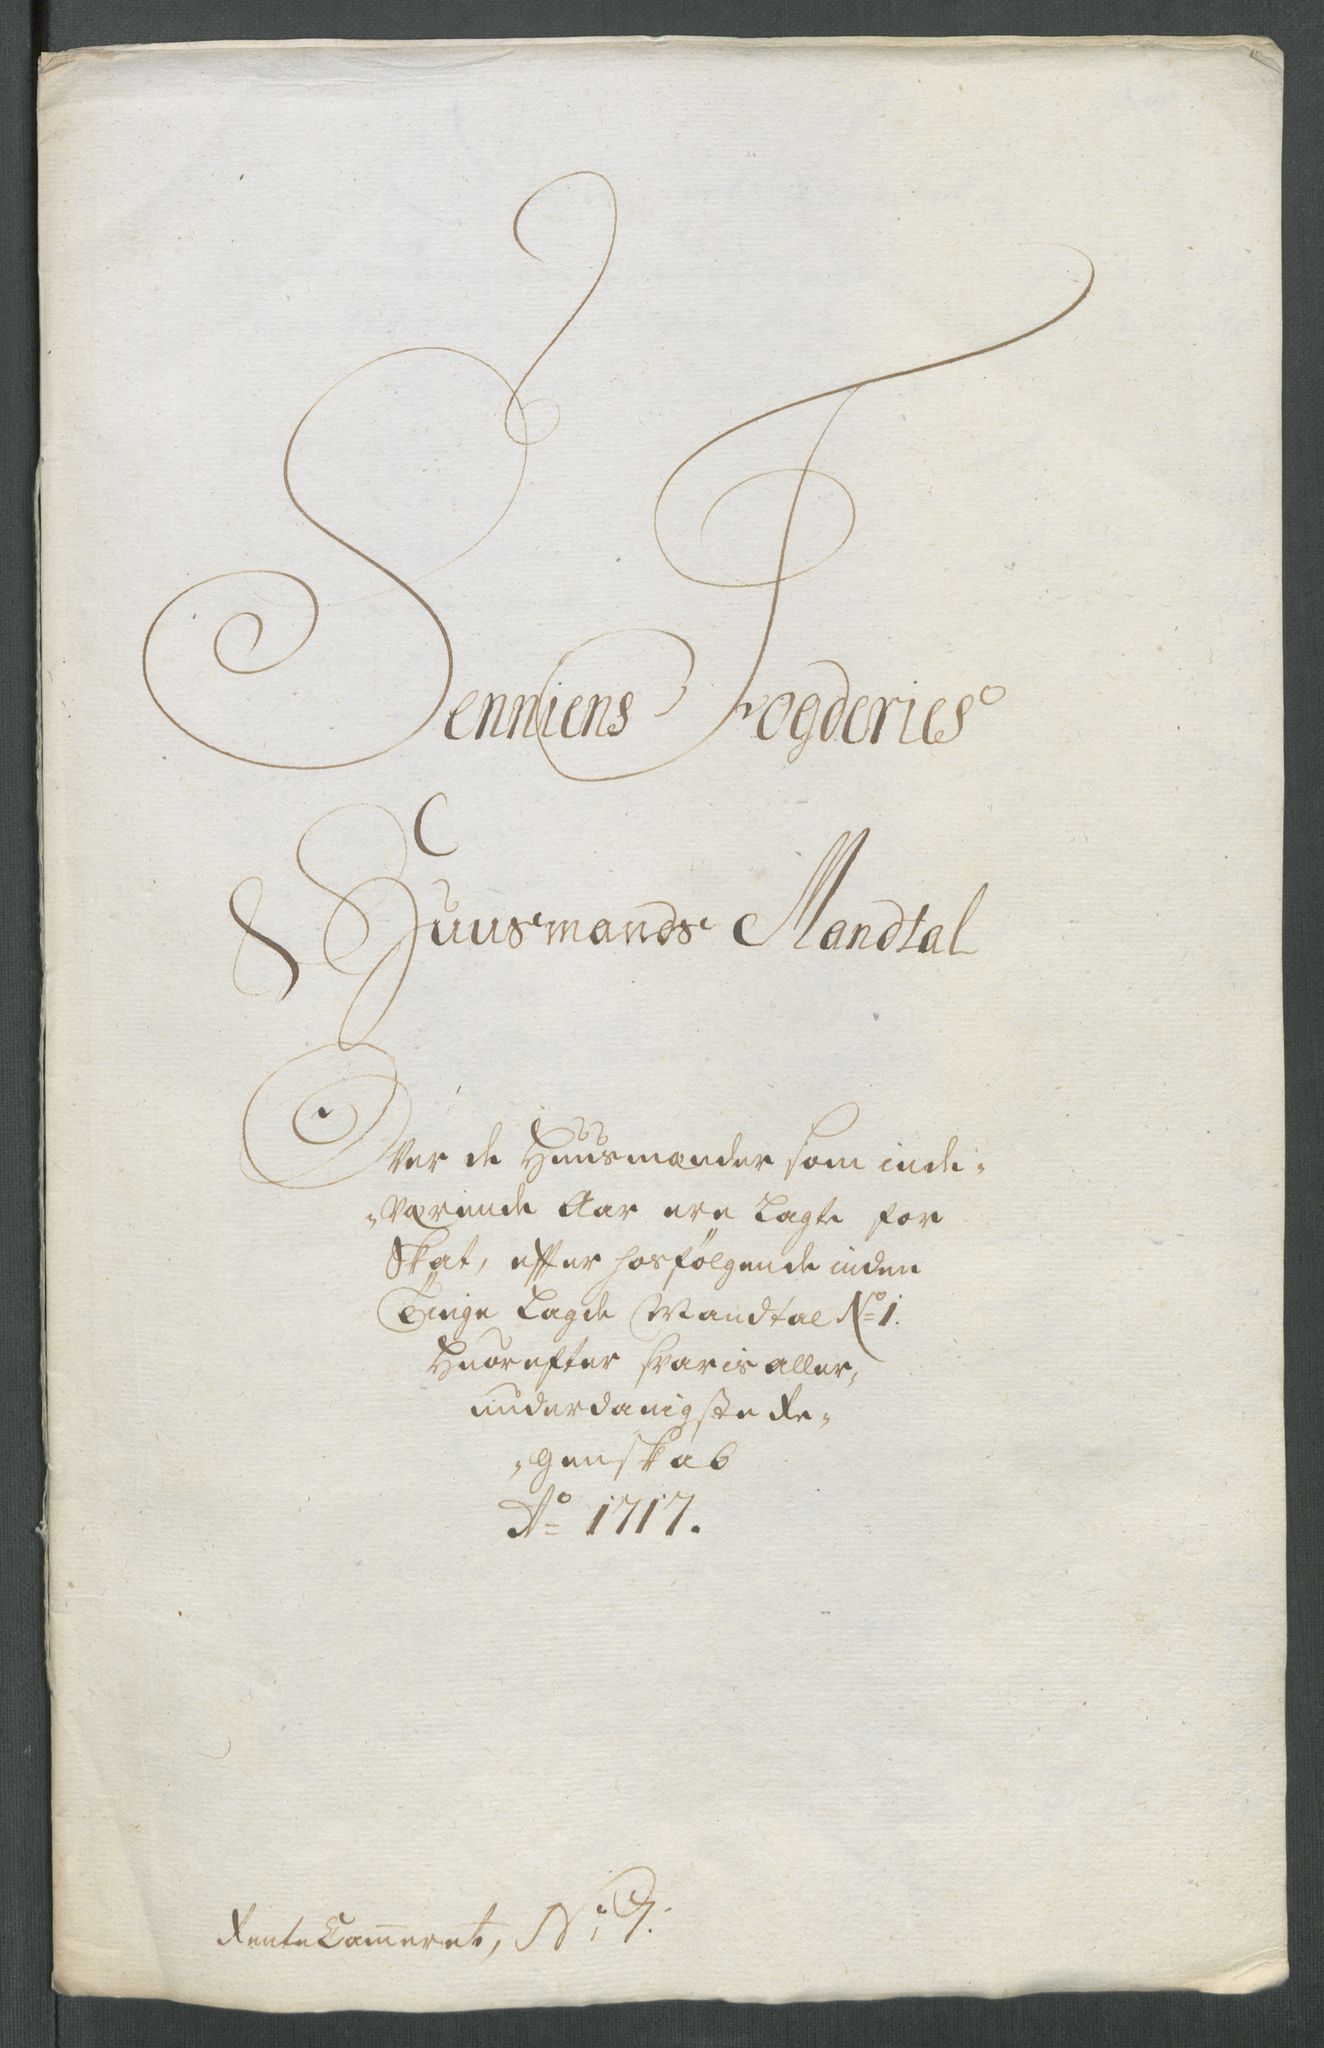 Senniens Fogderies
Huusmands Mandtal
Over de Huusmænder som inde-
-værende Aar ere Lagte for
Skat, effter hosfölgende inden
Tinge Lagde Mandtal No 1.
Huorefter svaris aller,
underdanigste Re-
-genskab
Ao 1717.
RenteCammeret, No 7.